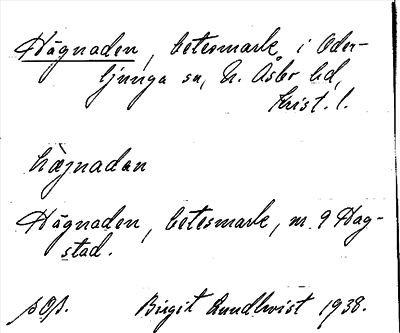 Hägnaden, betesmark i Oder-
ljunga sn, N. Åsbo hd,
Krist. l.
hägnadan
Hägnaden, betesmark, nr. 9 Hag-
stad.
Birgit Rundkvist 1938.